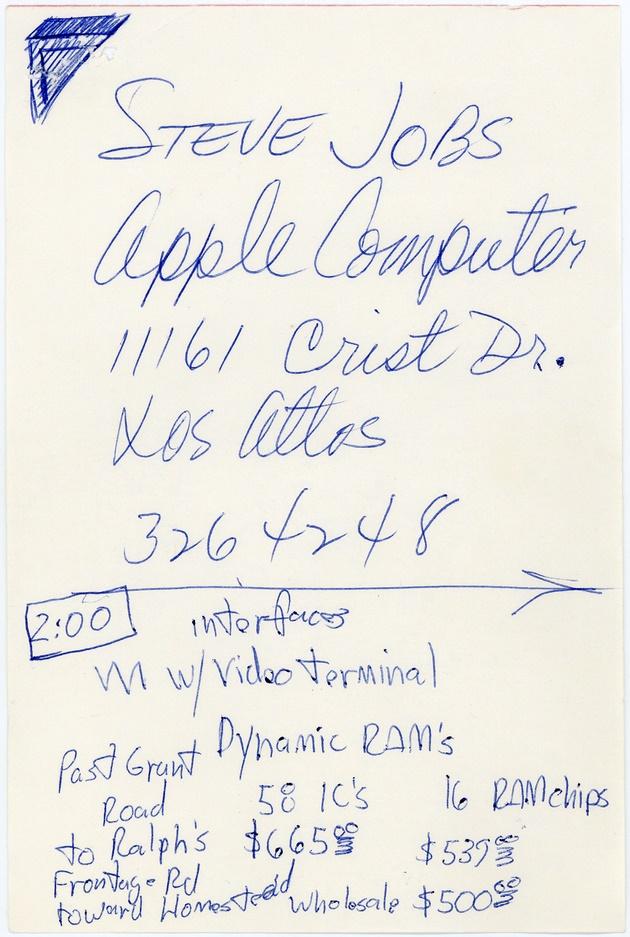 STEVE JOBS
Apple Computer
11161 Crist Dr.
Los Altos
326 4248
2:00 interfaces
w/ Video terminal
Dynamic RAM's
Past Grant
Road 58 IC's 16 RAM chips
to Ralph's $665.00 $539.00
Frontage Rd
toward Homestead wholesale $500.00